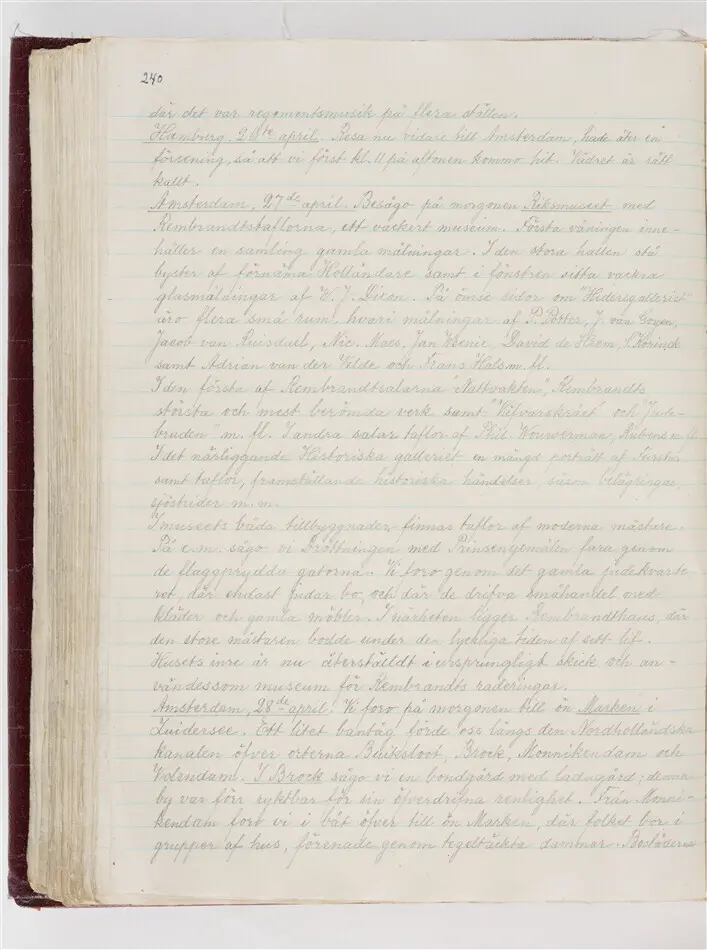 240
där det var regementsmusik på flera ställen.
Hamburg, 26te april. Resa nu vidare till Amsterdam, hade åter en
försening, så att vi först kl. 11 på aftonen kommo hit. Vädret är rätt
kallt.
Amsterdam, 27de april. Besågo på morgonen Riksmuseet med
Rembrandtstaflorna, ett vackert museum. Första våningen inne-
håller en samling gamla målningar. I den stora hallen stå
byster af förnäma Holländare samt i fönstren sitta vackra
glasmålningar af W. J. Dixon. På ömse sidor om
äro flera små rum hvari målningar af P. Potter, J. van Goyen,
Jacob van Ruisduel, Nic. Maes, Jan Weenic, David de Heem,
samt Adrian van der Velde och Frans Hals m. fl.
I den första af Rembrandtsalarna "Nattvakten", Rembrandts
största och mest berömda verk samt och "Jude-
bruden" m. fl. I andra salar taflor af Phil. Wouwerman, Rubens m. fl.
I det närliggande Historiska galleriet en mängd porträtt af Furstar
samt taflor, framställande historiska händelser, såsom belägringar,
sjöstrider m. m.
I museets båda tillbyggnader finnas taflor af moderna mästare.
På e. m. sågo vi Drottningen med Prinsengemålen fara genom
de flaggprydda gatorna. Vi foro genom det gamla judekvarte-
ret, där endast judar bo, och där de drifva småhandel med
kläder och gamla möbler. I närheten ligger Rembrandthaus, där
den store mästaren bodde under den lyckliga tiden af sitt lif.
Husets inre är nu återställdt i ursprungligt skick och an-
vändes som museum för Rembrandts raderingar.
Amsterdam, 28de april. Vi foro på morgonen till ön Marken i
Zuidersee. Ett litet bantåg förde oss längs den Nordholländska
kanalen öfver orterna Buiksloot, Brock, Monnikendam och
Volendam. I Brock sågo vi en bondgård med ladugård; denna
by var förr ryktbar för sin öfverdrifna renlighet. Från Monni-
kendam foro vi i båt öfver till ön Marken, där folket bor i
grupper af hus, förenade genom tegeltäckta dammar. Bostäderna